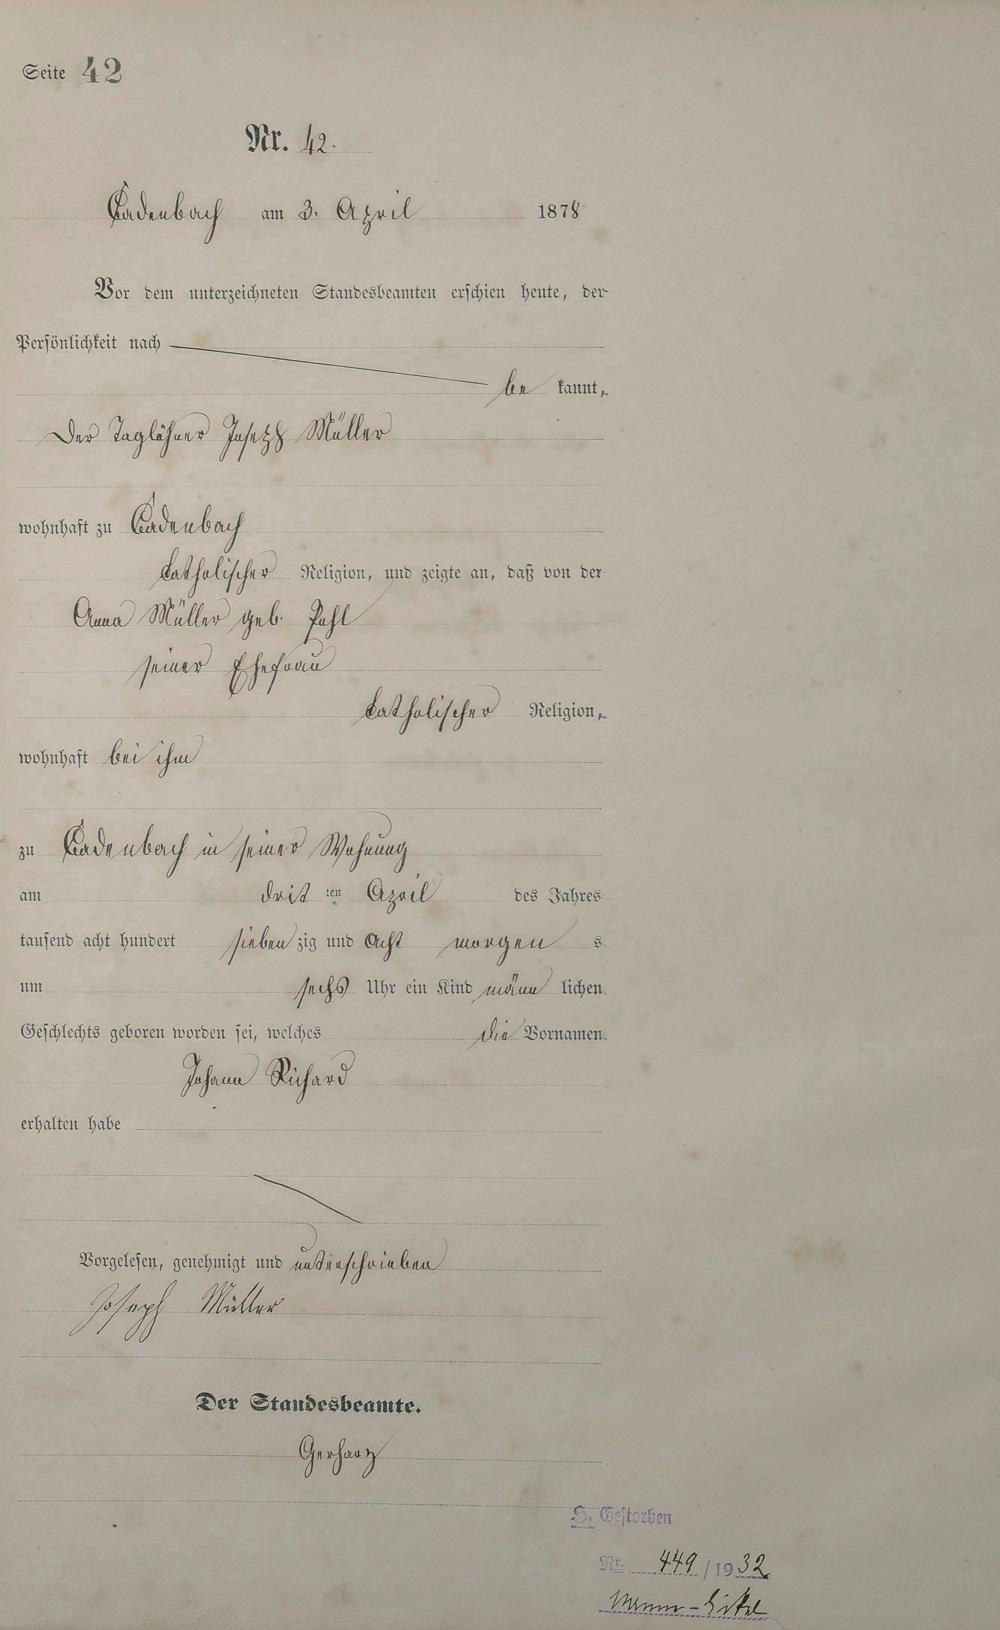 Seite 42
Nr. 42.
Cadenbach am 3. April 1878
Vor dem unterzeichneten Standesbeamten erschien heute, der
Persönlichkeit nach
be kannt,
Der Taglöhner Joseph Müller
wohnhaft zu Cadenbach
katholischer Religion, und zeigte an, daß von der
Anna Müller geb. Pohl
seiner Ehefrau
katholischer Religion,
wohnhaft bei ihm
zu Cadenbach in seiner Wohnung
am drit ten April des Jahres
tausend acht hundert sieben zig und acht morgen s
um sechs Uhr ein Kind männ lichen
Geschlechts geboren worden sei, welches die Vornamen
Johann Richard
erhalten habe
Vorgelesen, genehmigt und unterschrieben
Joseph Müller
Der Standesbeamte.
Gerharz
S. Gestorben
Nr. 449/1932
Wanne-Eickel